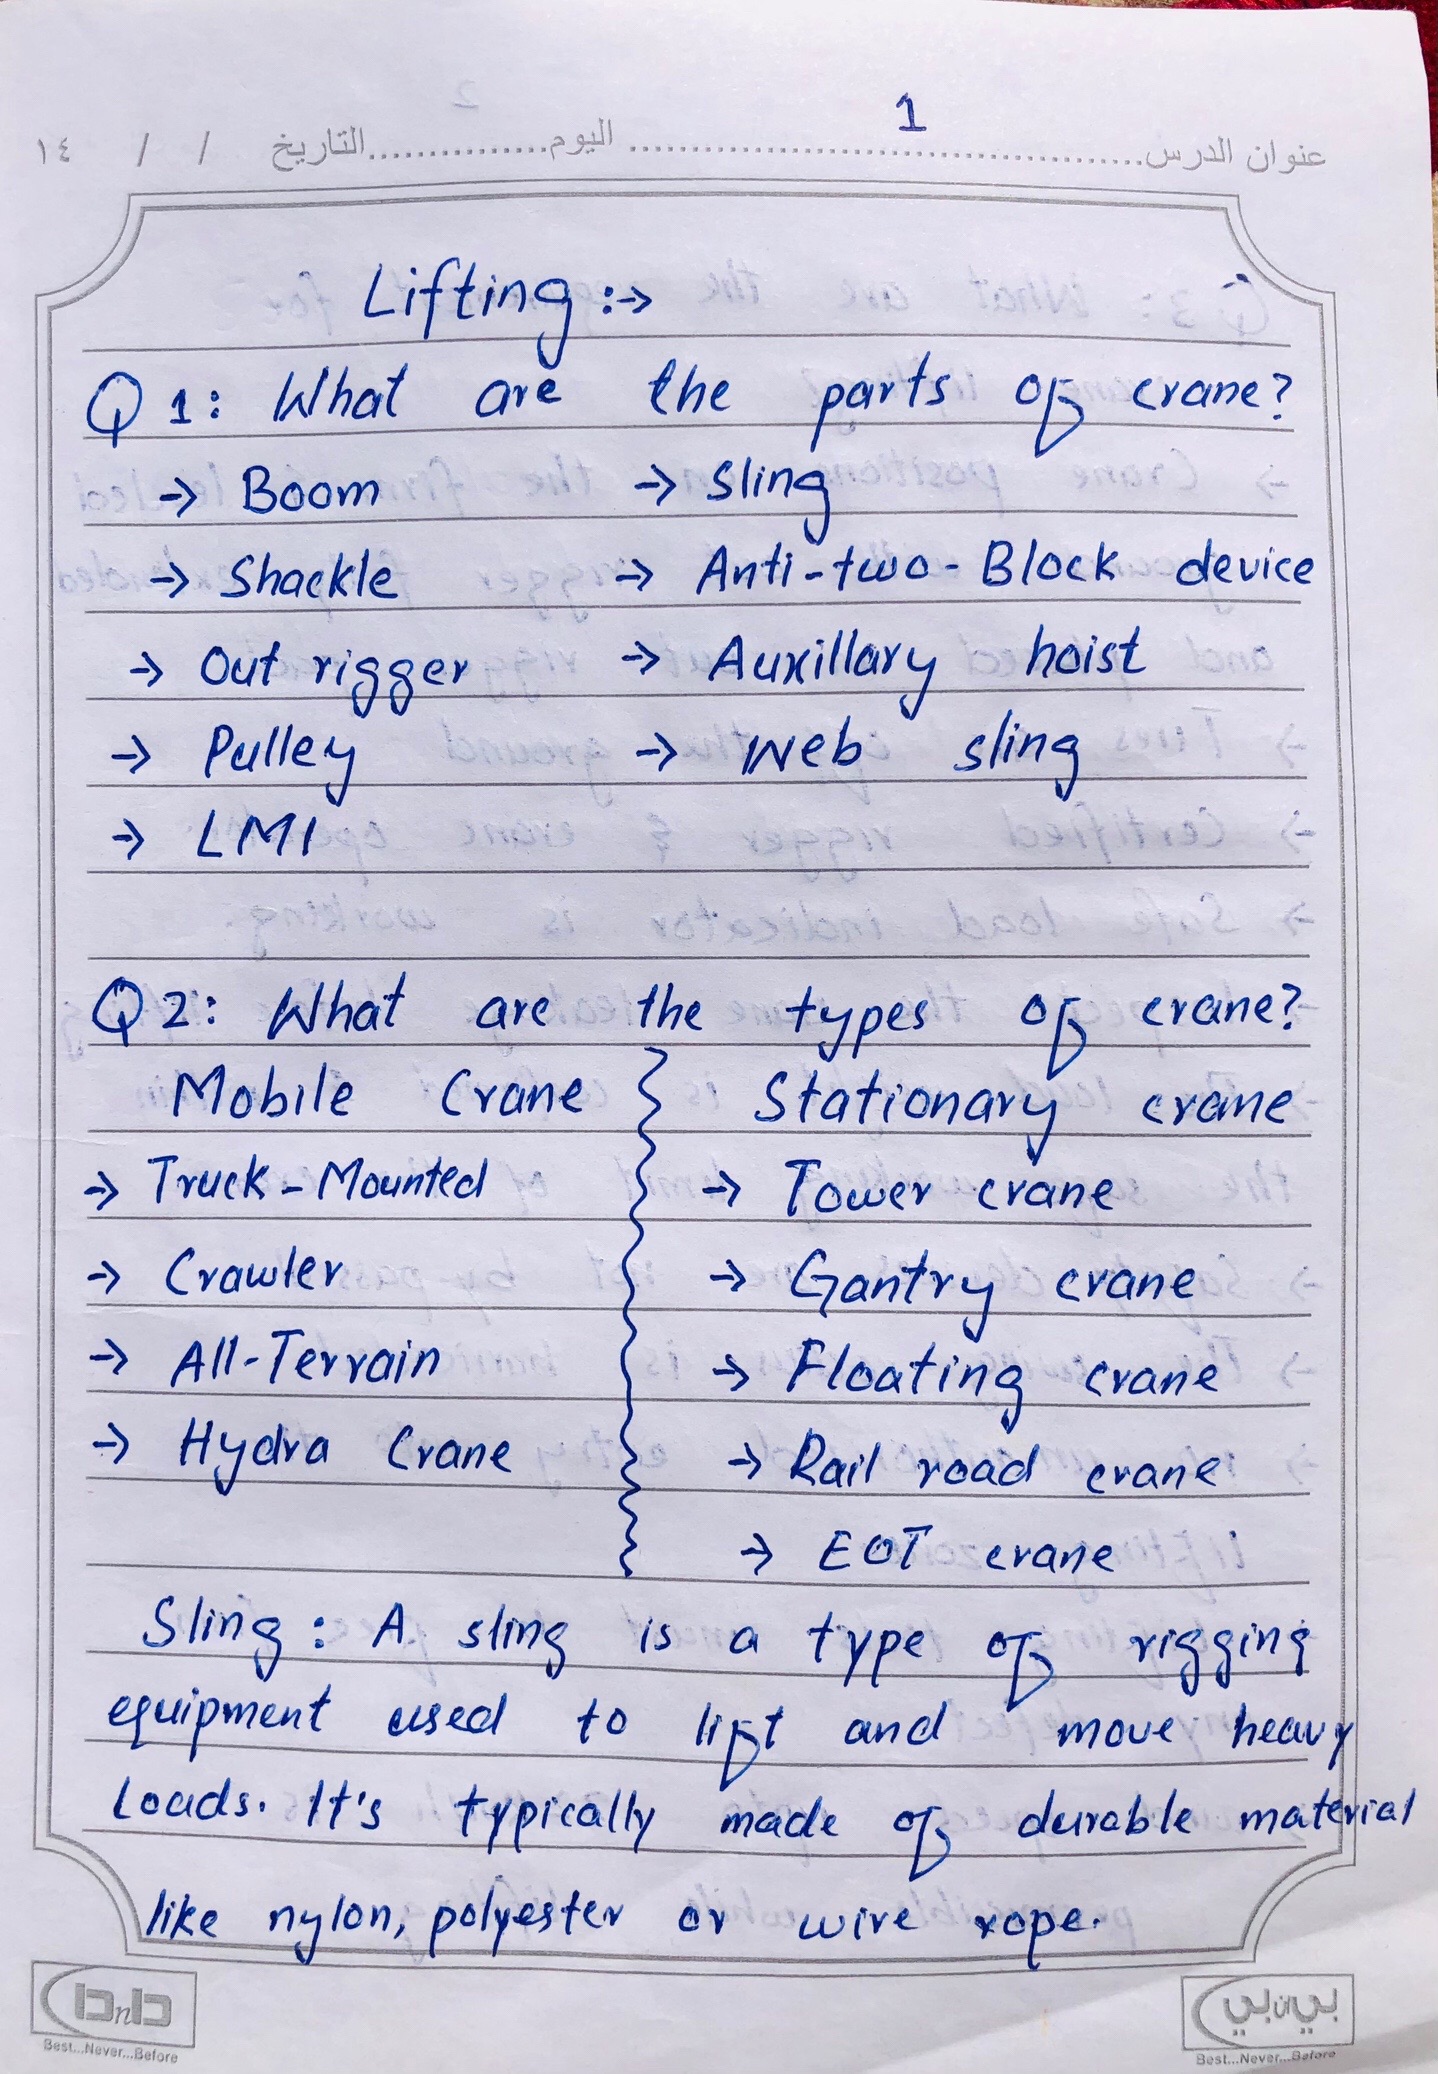 1
عنوان الدرس ........ اليوم ........ التاريخ / / ١٤
Lifting :→
Q 1: What are the parts of crane?
→ Boom → Sling
→ Shackle → Anti-two-Block device
→ Out rigger → Auxillary hoist
→ Pulley → Web sling
→ LMI
Q 2: What are the types of crane?
Mobile Crane Stationary crane
→ Truck-Mounted → Tower crane
→ Crawler → Gantry crane
→ All-Terrain → Floating crane
→ Hydra Crane → Rail road crane
→ EOT crane
Sling: A sling is a type of rigging
equipment used to lift and move heavy
Loads. It's typically made of durable material
like nylon, polyester or wire rope.
بي ان بي
Best...Never...Before
Best...Never...Before